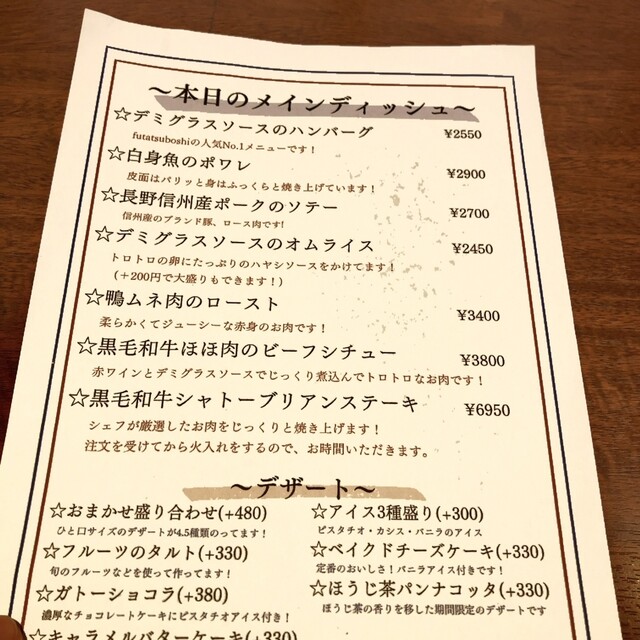 ～本日のメインディッシュ～
☆デミグラスソースのハンバーグ ¥2550
futatsuboshiの人気No.1メニューです！
☆白身魚のポワレ ¥2900
皮面はパリッと身はふっくらと焼き上げています！
☆長野信州産ポークのソテー ¥2700
信州産のブランド豚、ロース肉です!
☆デミグラスソースのオムライス ¥2450
トロトロの卵にたっぷりのハヤシソースをかけてます！
（＋200円で大盛りもできます！）
☆鴨ムネ肉のロースト ¥3400
柔らかくてジューシーな赤身のお肉です！
☆黒毛和牛ほほ肉のビーフシチュー ¥3800
赤ワインとデミグラスソースでじっくり煮込んでトロトロなお肉です！
☆黒毛和牛シャトーブリアンステーキ ¥6950
シェフが厳選したお肉をじっくりと焼き上げます！
注文を受けてから火入れをするので、お時間いただきます。
～デザート～
☆おまかせ盛り合わせ(+480)
ひと口サイズのデザートが4.5種類のってます！
☆フルーツのタルト(+330)
旬のフルーツなどを使って作ってます！
☆ガトーショコラ(+380)
濃厚なチョコレートケーキにピスタチオアイス付き！
☆キャラメルバターケーキ(+330)
☆アイス3種盛り(+300)
ピスタチオ・カシス・バニラのアイス
☆ベイクドチーズケーキ(+330)
定番のおいしさ！バニラアイス付きです！
☆ほうじ茶パンナコッタ(+330)
ほうじ茶の香りを移した期間限定のデザートです